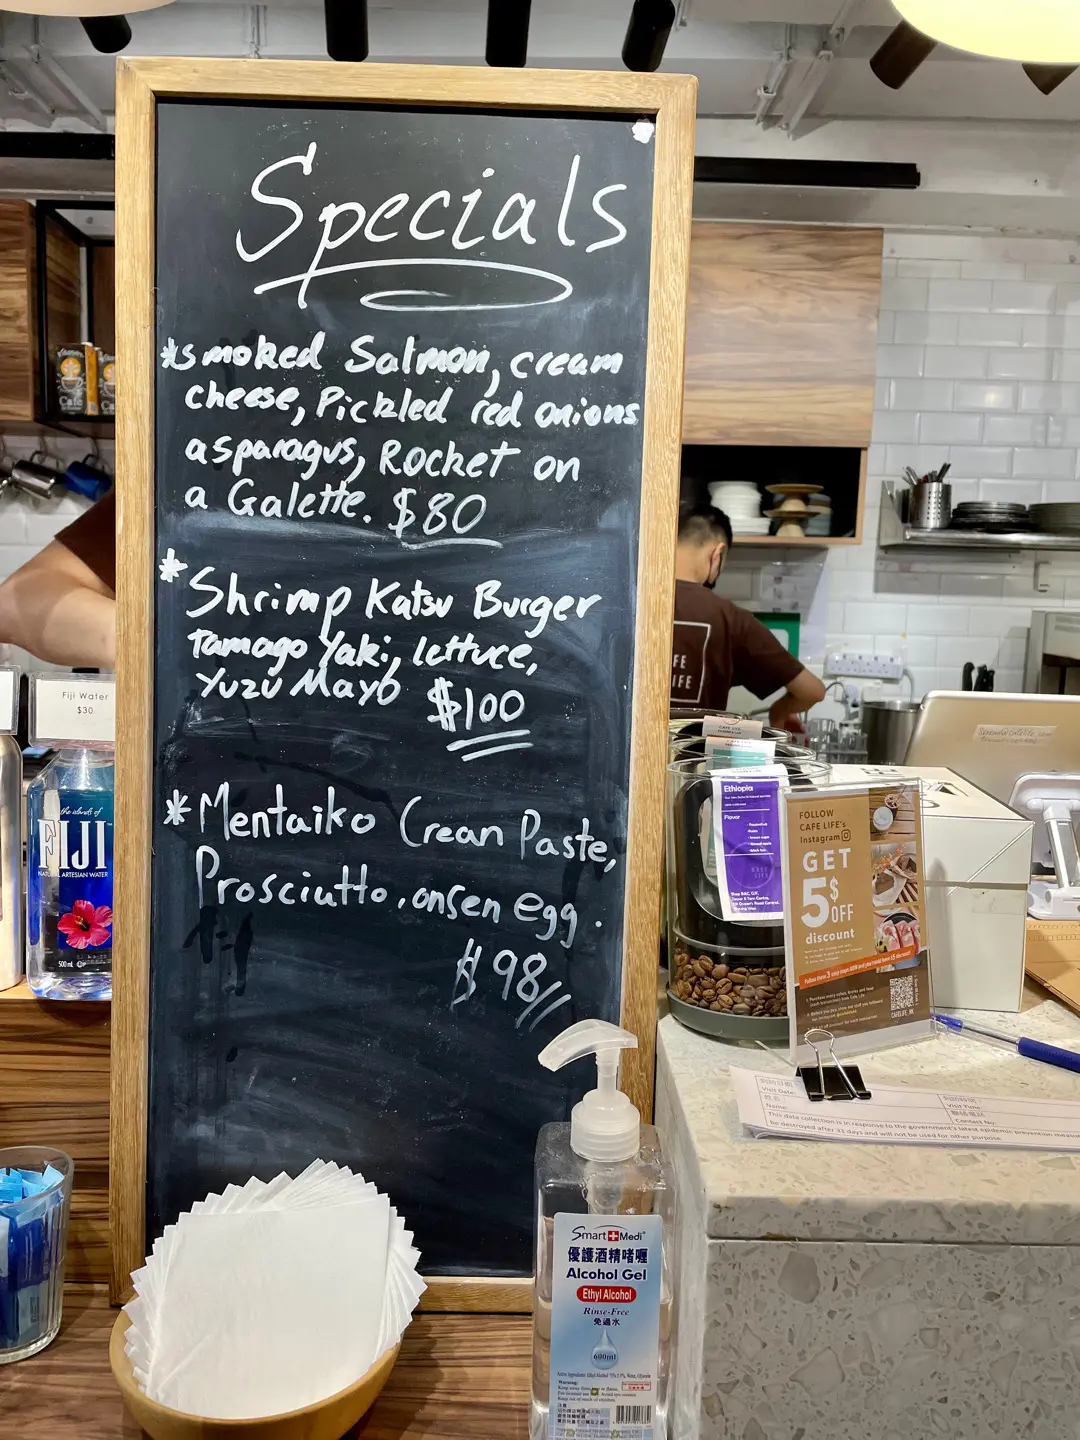 Specials
*smoked Salmon, cream
cheese, Pickled red onions
asparagus, Rocket on
a Galette. $80
*
Shrimp Katsu Burger
Tamago Yaki, lettuce,
Yuzu Mayo $100
*Mentaiko Crean Paste,
Prosciutto, onsen egg.
$98//
Fiji Water
$30
the islands of
FIJI
NATURAL ARTESIAN WATER
500 mL
FE
IFE
Ethiopia
Flavor
FOLLOW
CAFE LIFE's
Instagram
GET
5$
OFF
discount
CAFELIFE_HK
Visit Date:
Name:
Visit Time:
Contact No:
This data collection is in response to the government's latest epidemic prevention
be destroyed after 31 days and will not be used for other purpose.
Smart Medi
優護酒精啫喱
Alcohol Gel
Ethyl Alcohol
Rinse-Free
免過水
600ml
Warning: